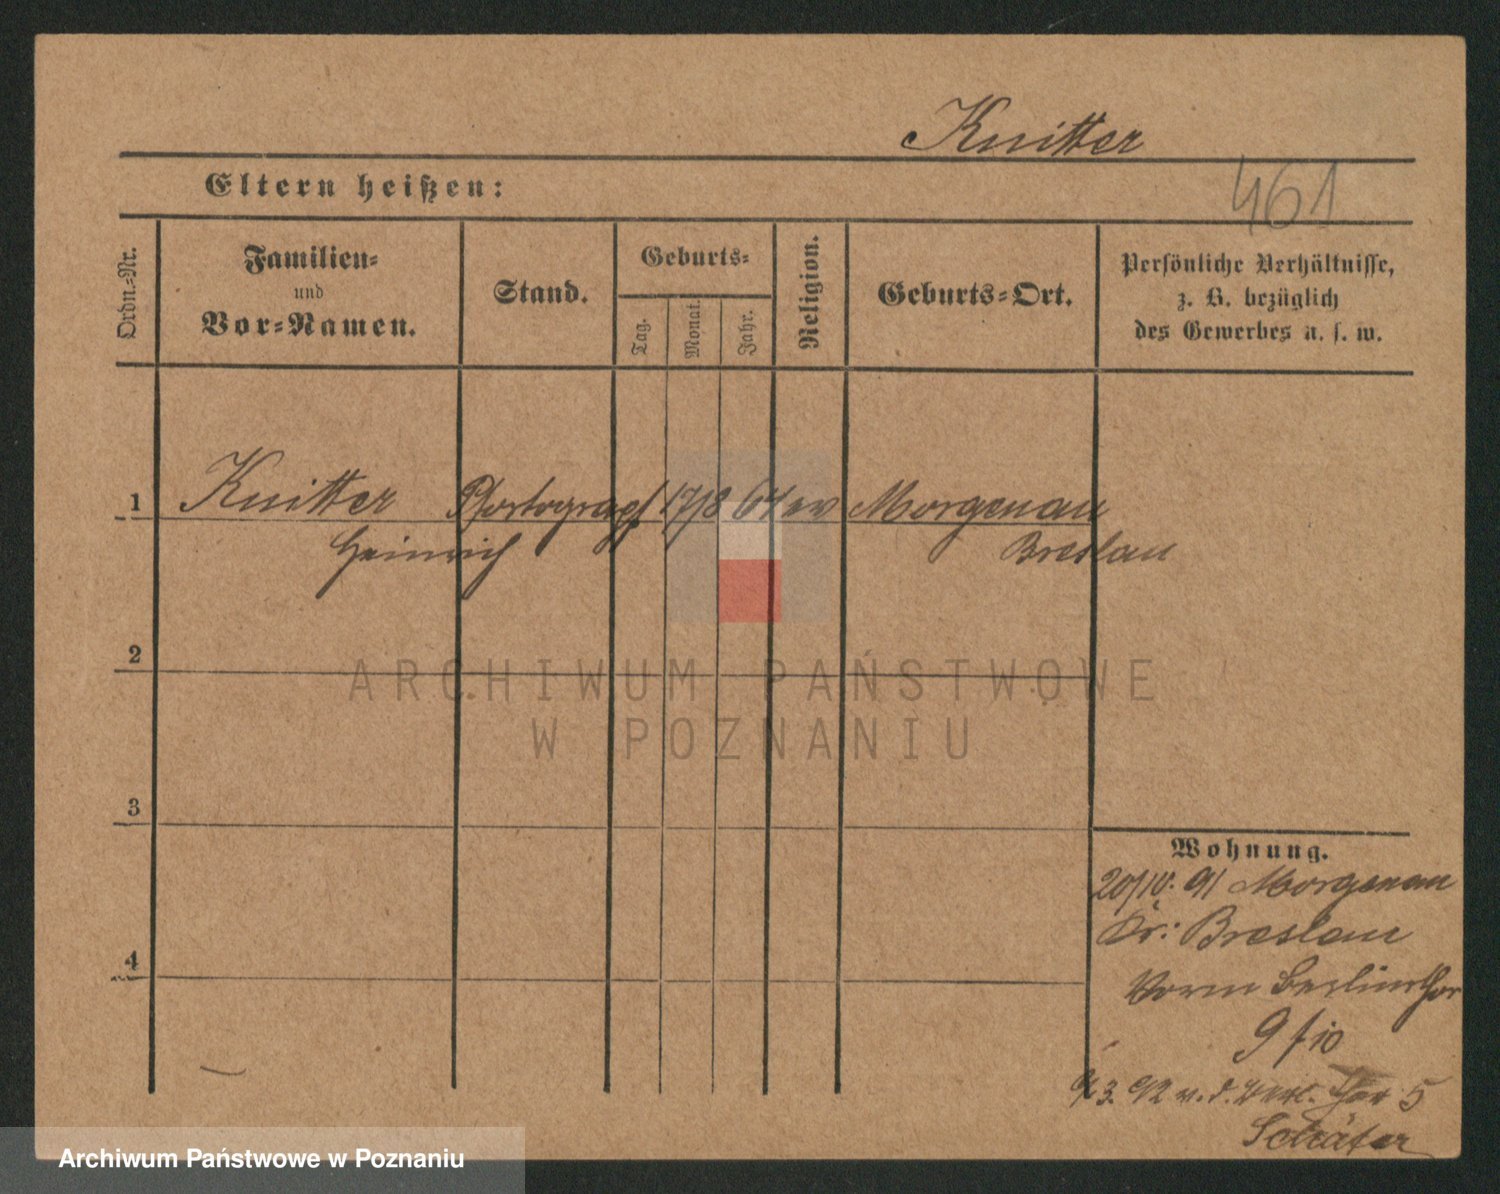 Knitter
461
Eltern heißen:
Ordn.-Nr.
Familien-
und
Vor-Namen.
Stand.
Geburts-
Tag.
Monat.
Jahr.
Religion.
Geburts-Ort.
Persönliche Verhältnisse,
z. B. bezüglich
des Gewerbes u. s. w.
1 Knitter Photograph 17/8 64 ev Morgenau
Heinrich Breslau
2
ARCHIWUM PAŃSTWOWE
W POZNANIU
3
4
Wohnung.
20/IV. 91 Morgenau
Kr: Breslau
Vorm Berlinthor
9/10
3. 92 v. d. Berl. Thor 5
Schäfer
Archiwum Państwowe w Poznaniu